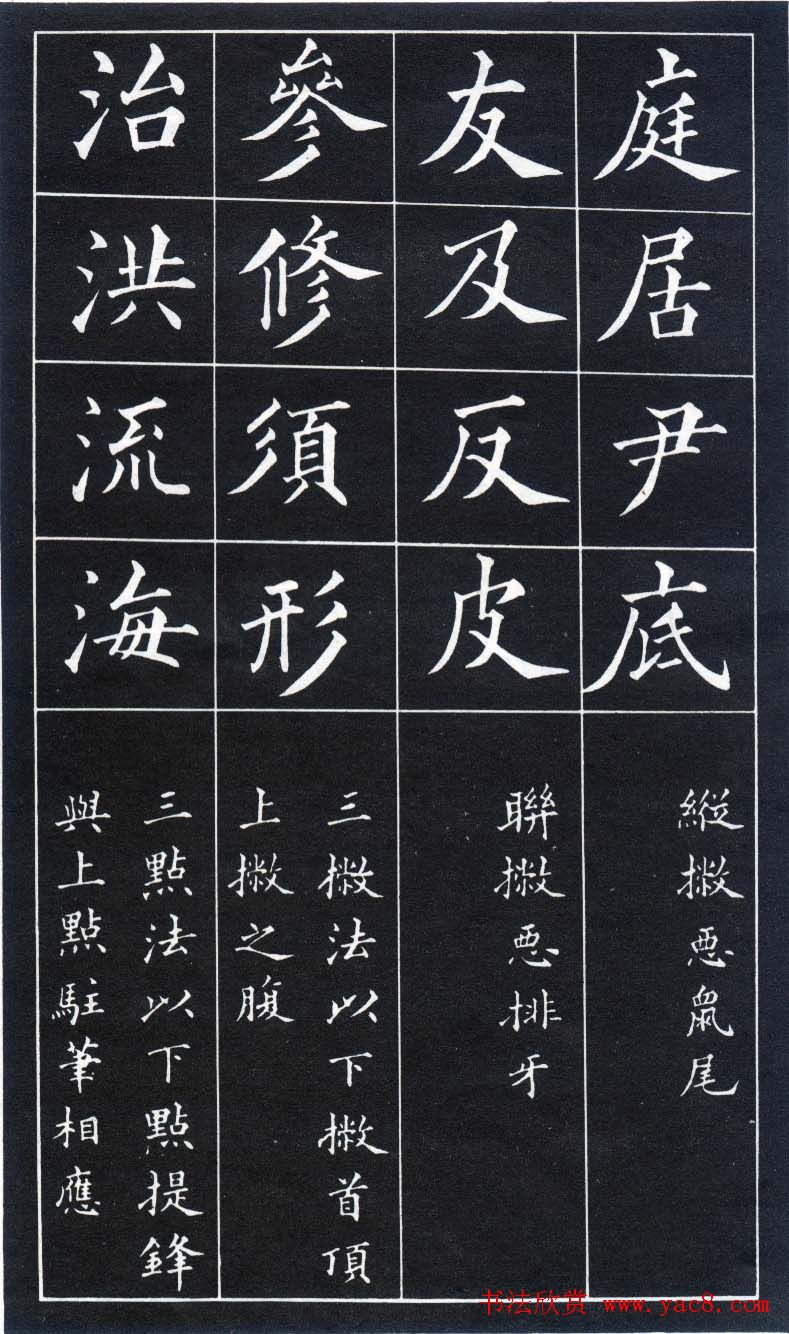 庭居尹底
縱撇惡鼠尾
友及反皮
聯撇惡排牙
參修須形
三撇法以下撇首頂
上撇之腹
治洪流海
三點法以下點提鋒
與上點駐筆相應
书法欣赏 www.yac8.com